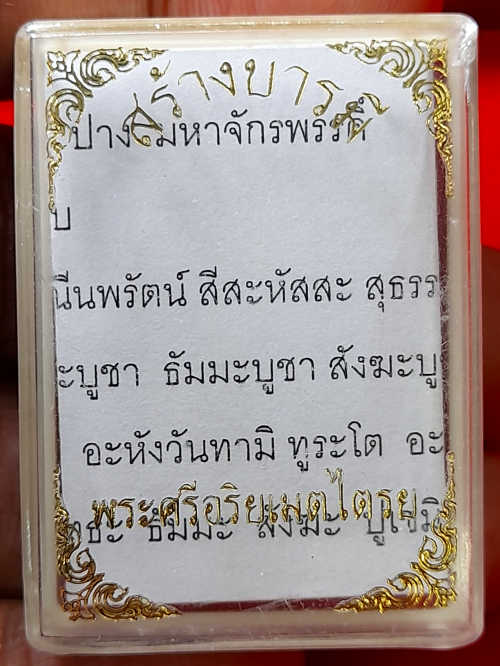 สร้างบารมี
ปางมหาจักรพรรดิ์
บ
นีนพรัตน์ สีสะหัสสะ สุธรร
ะบูชา ธัมมะบูชา สังฆะบู
อะหังวันทามิ ทูระโต อะ
พระศรีอริยเมตไตรย
ธัมมะ สังฆะ ปูเชมิ